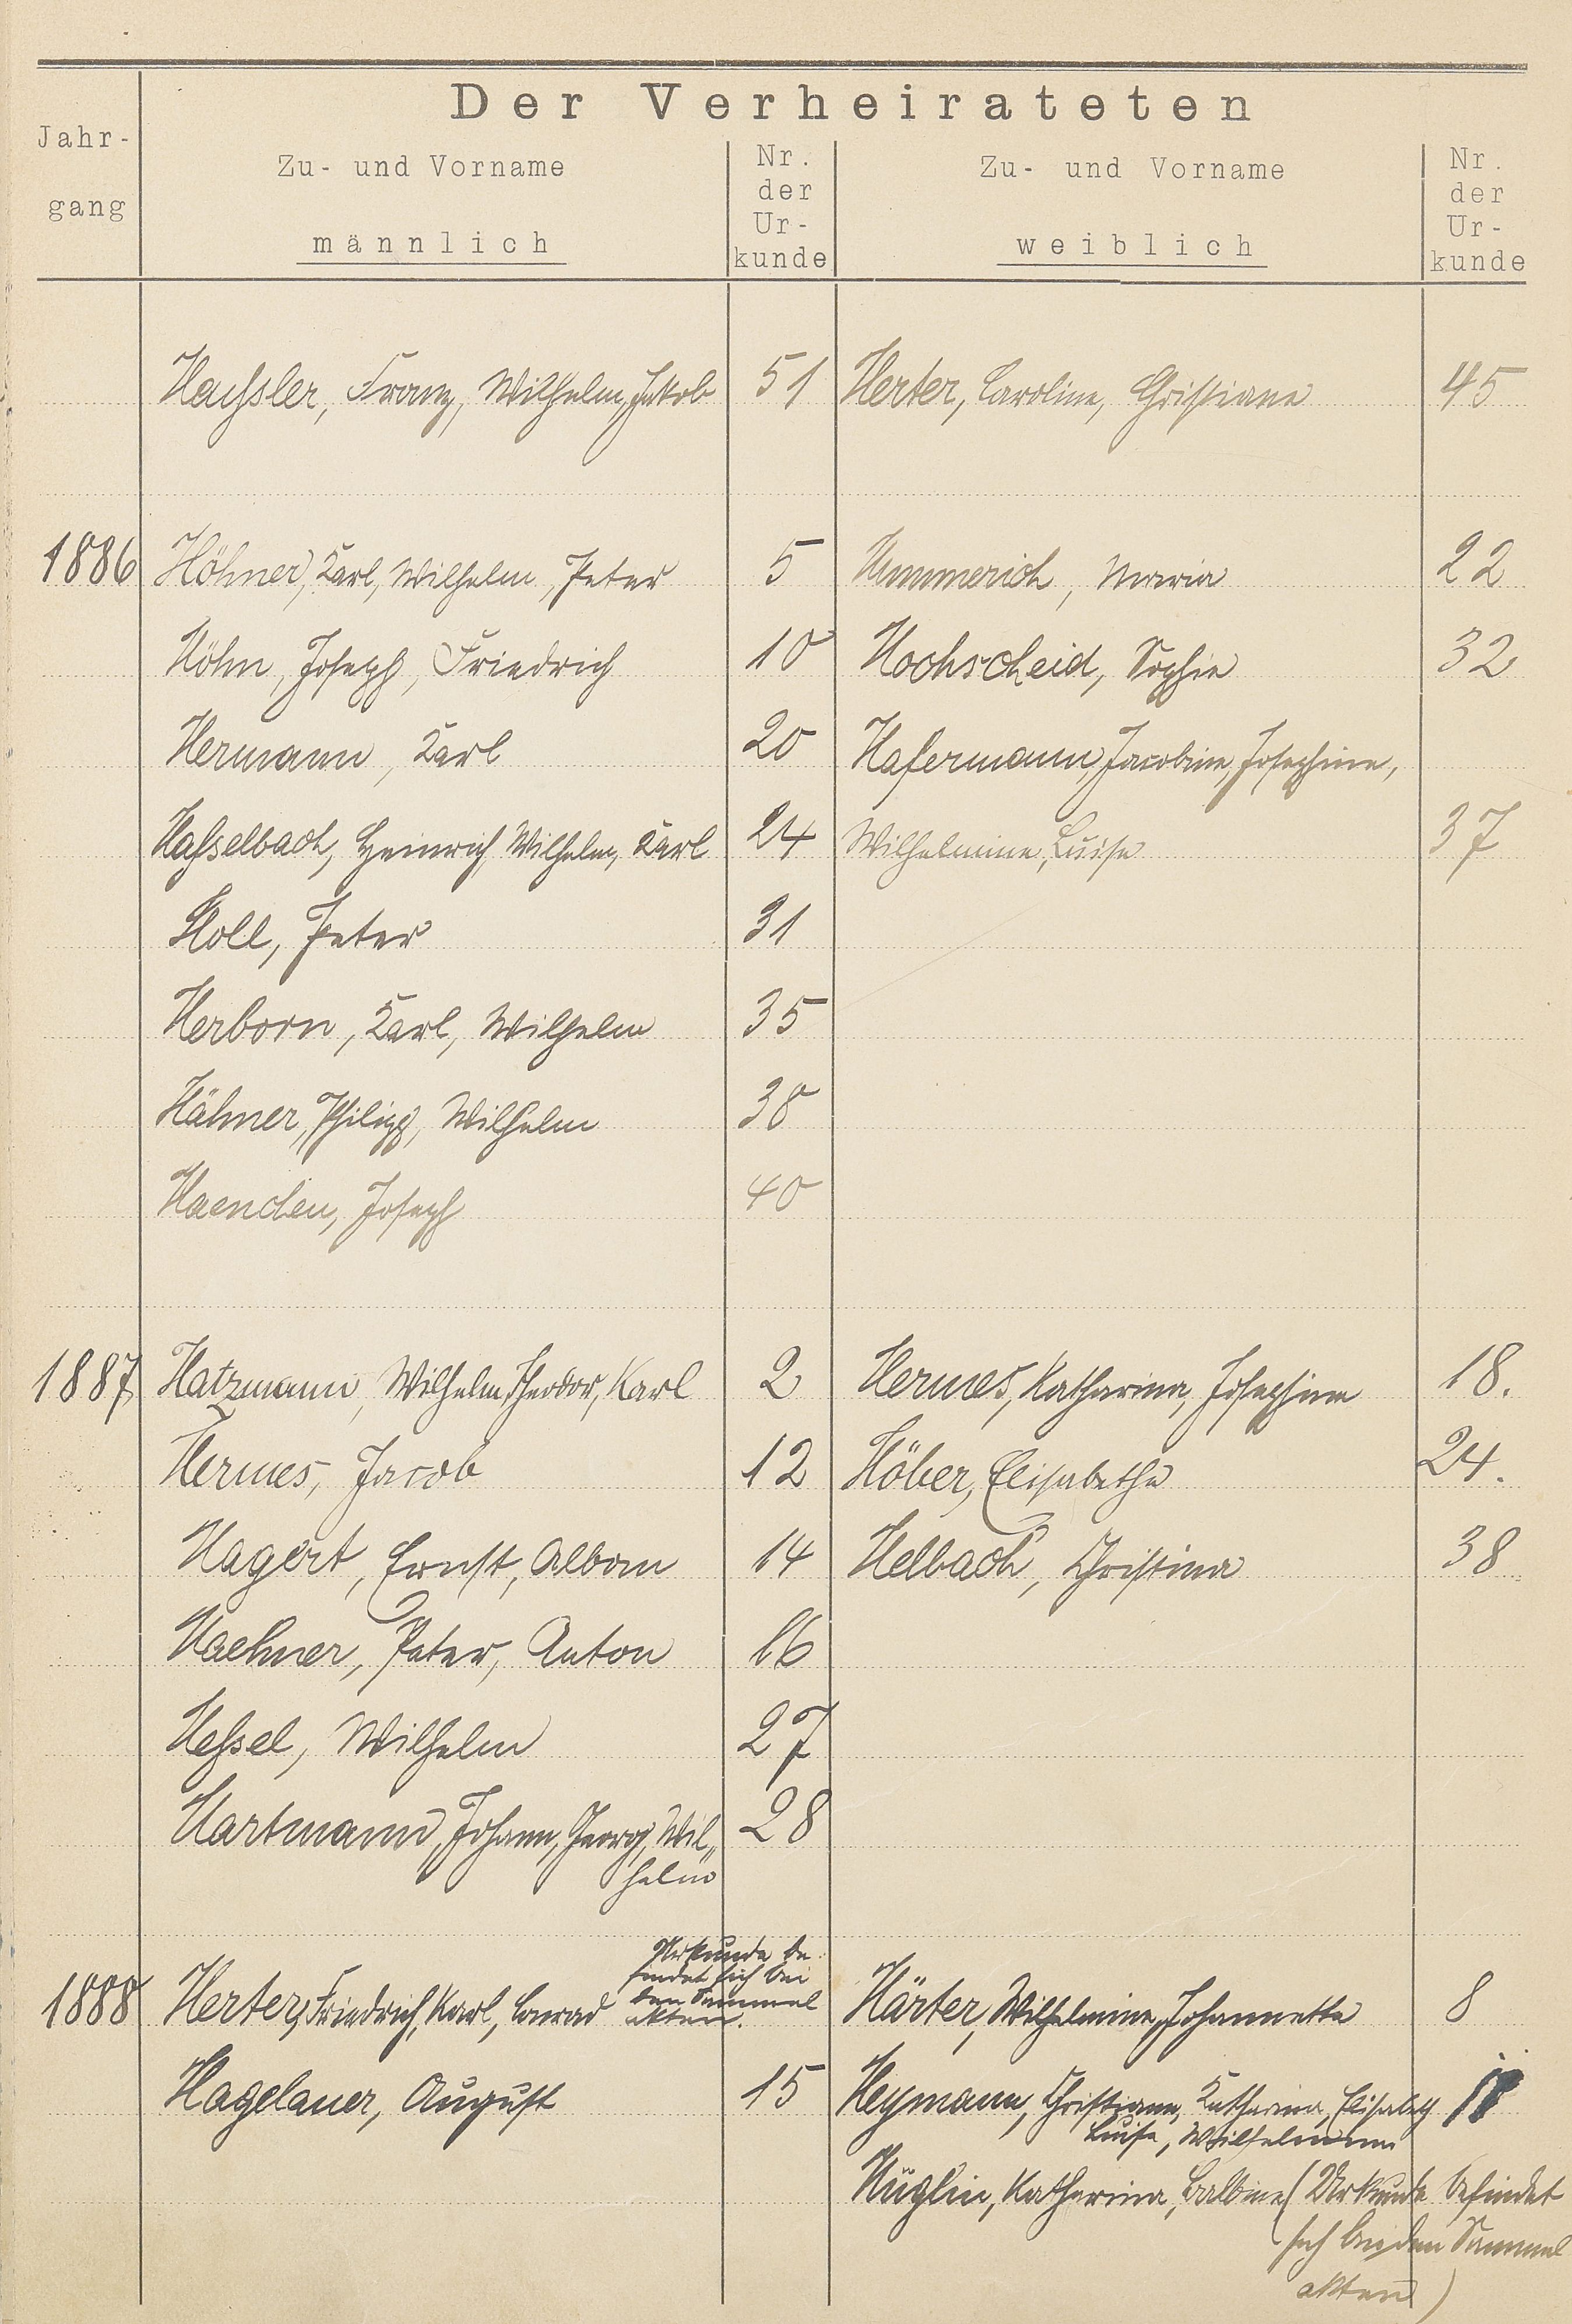 Der Verheirateten
Jahr-
gang
Zu- und Vorname
männlich
Nr.
der
Ur-
kunde
Zu- und Vorname
weiblich
Nr.
der
Ur-
kunde
Haeßler, Franz, Wilhelm, Jakob 51 Herter, Caroline, Christiane 45
1886 Höhner, Karl, Wilhelm, Peter 5 Hummerich, Maria 22
Höhn, Joseph, Friedrich 10 Hochscheid, Sophie 32
Hermann, Karl 20 Hafermann, Jacobine, Josephine,
Haßselbach, Heinrich Wilhelm, Karl 24 Wilhelmine, Luise 37
Holl, Peter 31
Herborn, Karl, Wilhelm 35
Hähner, Philipp, Wilhelm 38
Haenchen, Joseph 40
1887 Hatzmann, Wilhelm, Theodor, Karl 2 Hermes, Katharina, Josephine 18.
Hermes, Jacob 12 Höber, Elisabetha 24.
Hagert, Ernst, Alban 14 Helbach, Christina 38
Haehner, Peter, Anton 16
Heßel, Wilhelm 27
Hartmann, Johann, Georg, Wil„ 28
helm
Urkunde be
findet sich bei
den Sammel
akten.
1888 Herter, Friedrich, Karl, Conrad Härter, Wilhelmine, Johannette 8
Hagelauer, August 15 Heymann, Christiane, Katharina, Elisabeth
Luise, Wilhelmine
Hüglin, Katharina, Balbine (Urkunde befindet
sich bei den Sammel
akten)